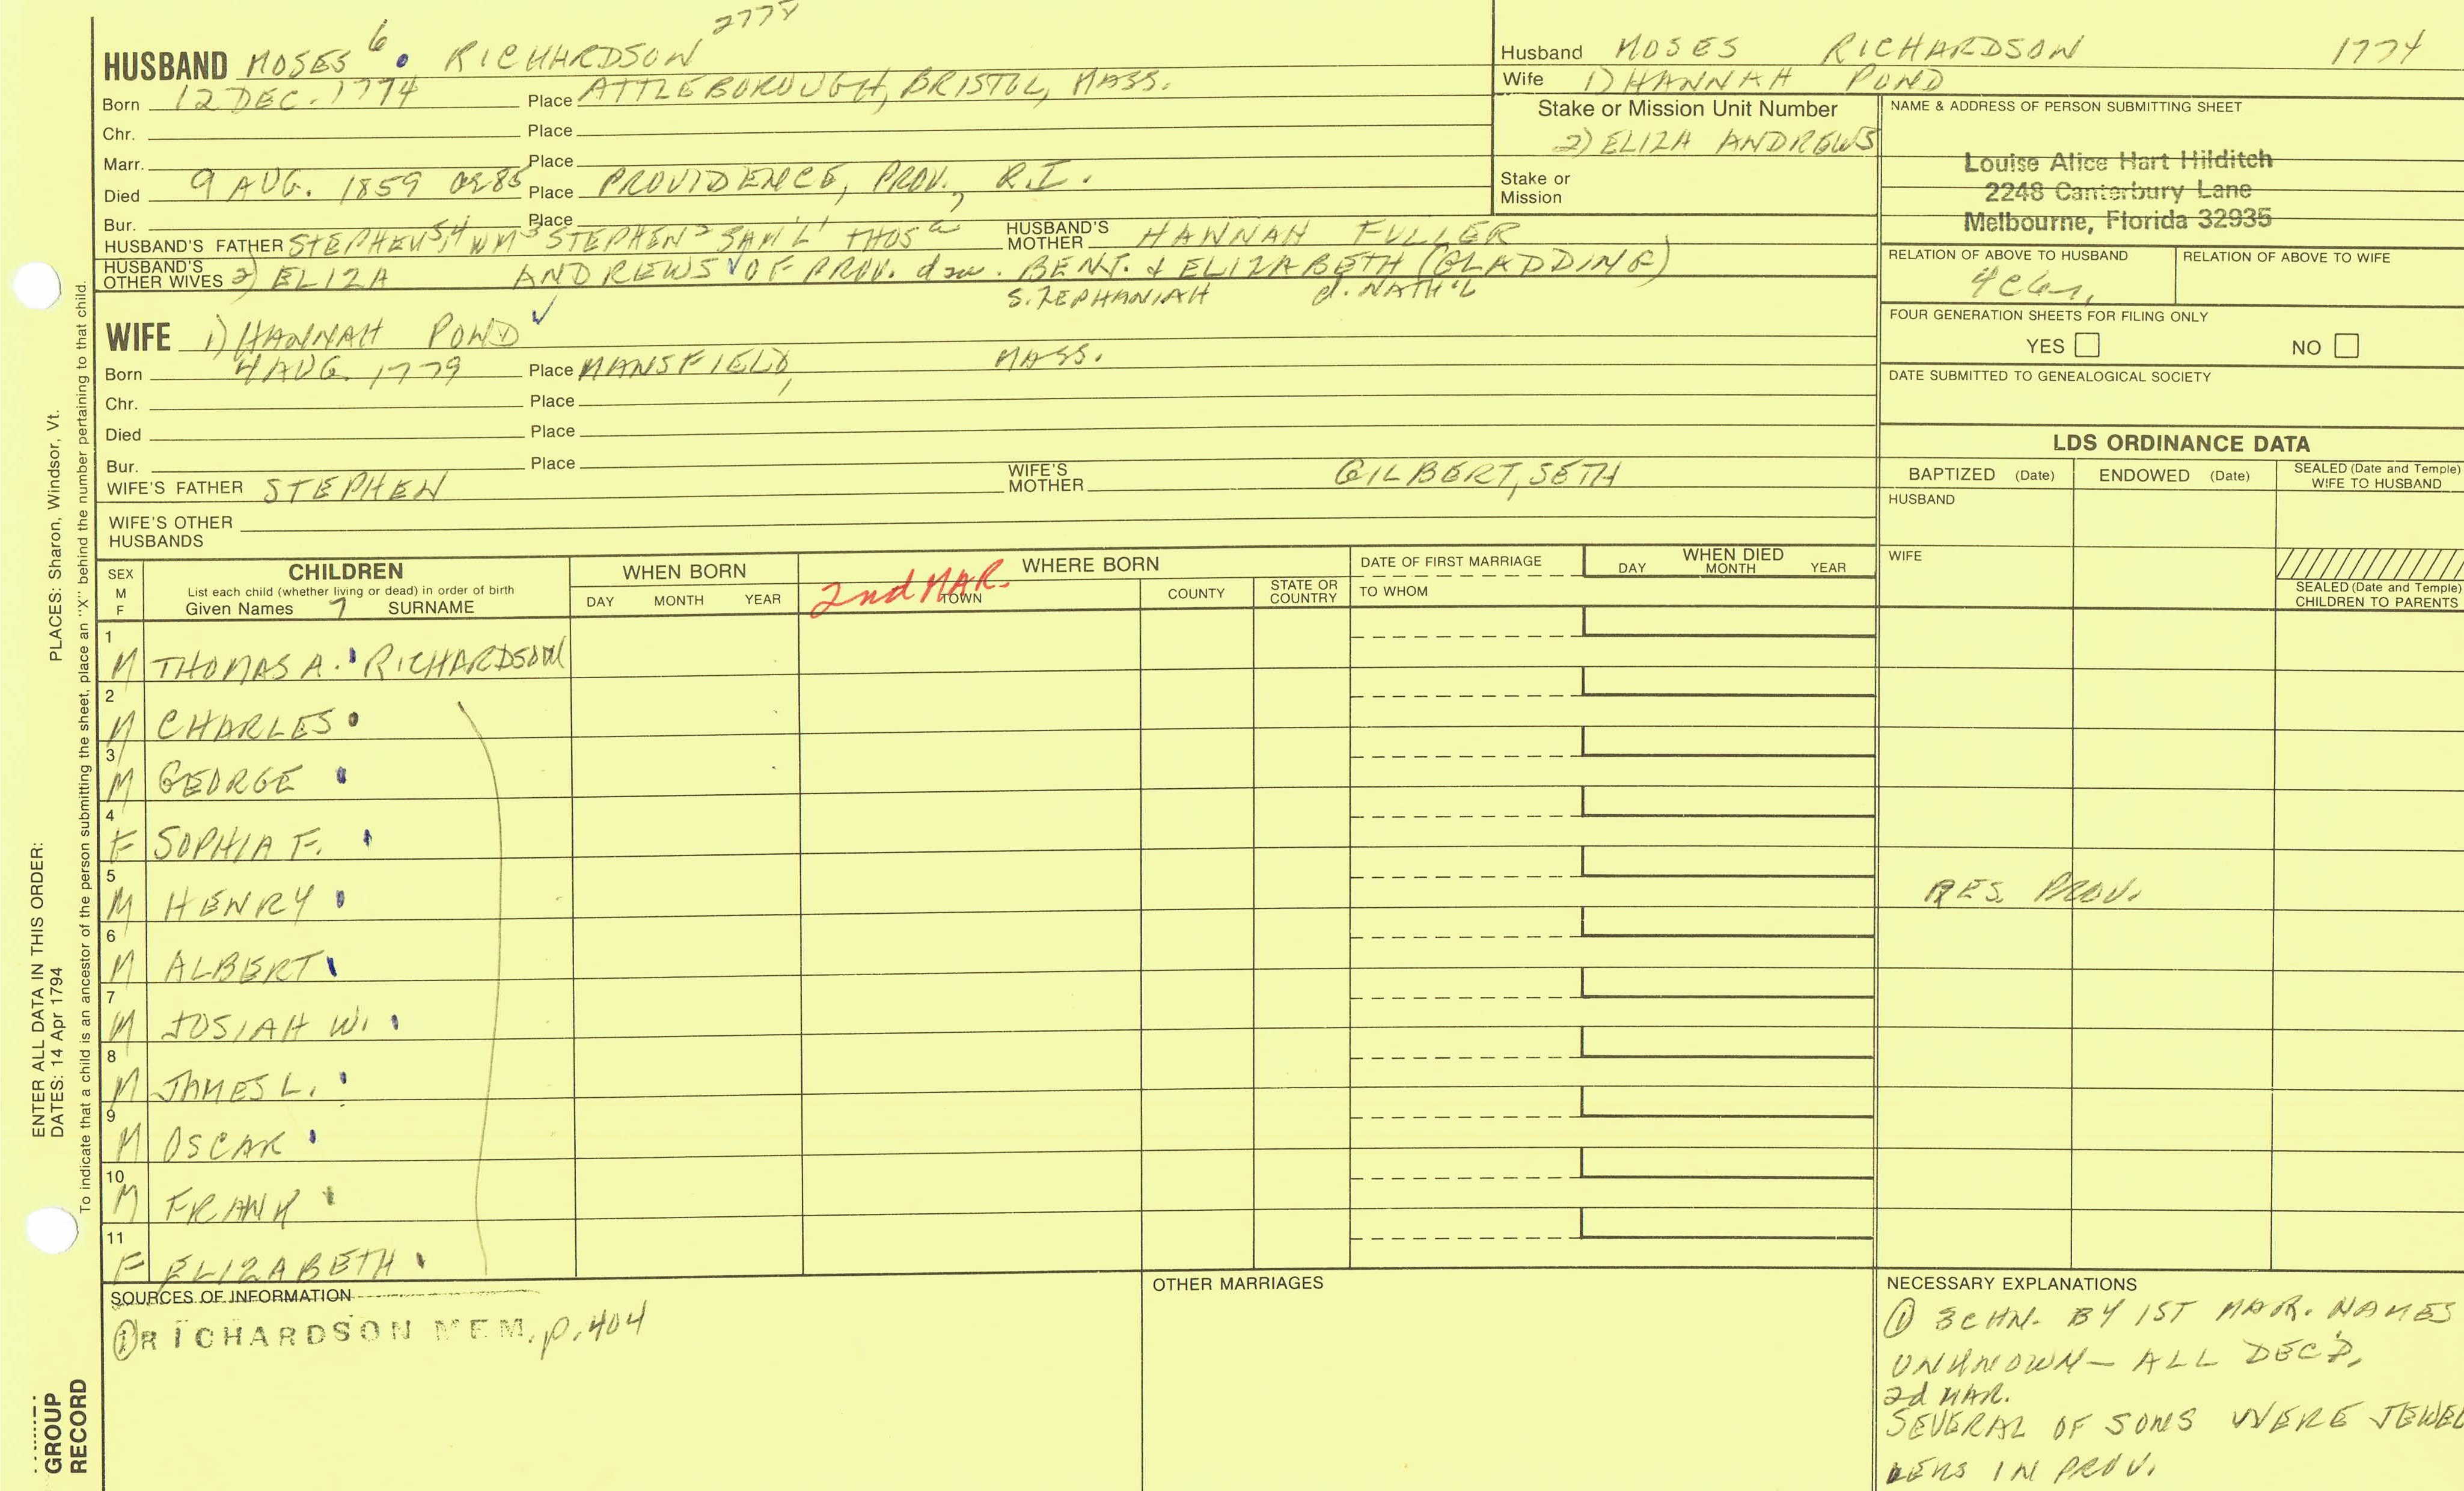 HUSBAND MOSES 6 . RICHARDSON
Born 12 DEC. 1774 Place ATTLEBOROUGH, BRISTOL, MASS.
Chr. Place
Marr. Place
Died 9 AUG. 1859 Place PROVIDENCE, PROV., R.I.
Bur. Place
HUSBAND'S FATHER STEPHEN 5,4 WM 3 STEPHEN 2 SAM'L 1 THOS a HUSBAND'S MOTHER HANNAH FULLER
HUSBAND'S OTHER WIVES 2) ELIZA ANDREWS OF PROV. dau. BENJ. & ELIZABETH (GLADDING)
S. ZEPHANIAH d. NATH'L
WIFE 1) HANNAH POND
Born 4 AUG. 1779 Place MANSFIELD, MASS.
Chr. Place
Died Place
Bur. Place
WIFE'S FATHER STEPHEN WIFE'S MOTHER GILBERT, SETH
WIFE'S OTHER HUSBANDS
Husband MOSES RICHARDSON 1774
Wife 1) HANNAH POND
Stake or Mission Unit Number
2) ELIZA ANDREWS
Stake or Mission
NAME & ADDRESS OF PERSON SUBMITTING SHEET
Louise Alice Hart Hilditch
2248 Canterbury Lane
Melbourne, Florida 32935
RELATION OF ABOVE TO HUSBAND RELATION OF ABOVE TO WIFE
FOUR GENERATION SHEETS FOR FILING ONLY
YES NO
DATE SUBMITTED TO GENEALOGICAL SOCIETY
LDS ORDINANCE DATA
BAPTIZED (Date) ENDOWED (Date) SEALED (Date and Temple) WIFE TO HUSBAND
HUSBAND
WIFE
SEALED (Date and Temple) CHILDREN TO PARENTS
SEX M F
CHILDREN
List each child (whether living or dead) in order of birth
Given Names 7 SURNAME
WHEN BORN
DAY MONTH YEAR
2nd MAR.
WHERE BORN
TOWN COUNTY STATE OR COUNTRY
DATE OF FIRST MARRIAGE
TO WHOM
WHEN DIED
DAY MONTH YEAR
1 M THOMAS A. RICHARDSON
2 M CHARLES
3 M GEORGE
4 F SOPHIA F.
5 M HENRY RES. PROV.
6 M ALBERT
7 M JOSIAH W.
8 M JAMES L.
9 M OSCAR
10 M FRANK
11 F ELIZABETH
SOURCES OF INFORMATION
① RICHARDSON MEM. p. 404
OTHER MARRIAGES
NECESSARY EXPLANATIONS
① 3 CHN. BY 1ST MAR. NAMES
UNKNOWN - ALL DEC'D,
2d MAR.
SEVERAL OF SONS WERE JEWEL
LERS IN PROV.
ENTER ALL DATA IN THIS ORDER:
DATES: 14 Apr 1794 PLACES: Sharon, Windsor, Vt.
To indicate that a child is an ancestor of the person submitting the sheet, place an "X" behind the number pertaining to that child.
GROUP
RECORD